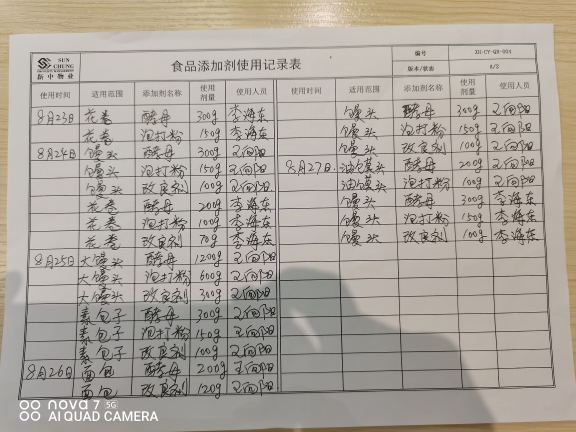 SUN CHUNG
新中物业
食品添加剂使用记录表
编号 ZH-CY-QR-004
版本/状态 A/2
使用时间 适用范围 添加剂名称 使用剂量 使用人员 使用时间 适用范围 添加剂名称 使用剂量 使用人员
8月23日 花卷 酵母 300g 李海东
花卷 泡打粉 150g 李海东
8月24日 馒头 酵母 300g 王向阳
馒头 泡打粉 150g 王向阳
馒头 改良剂 100g 王向阳
花卷 酵母 200g 李海东
花卷 泡打粉 100g 李海东
花卷 改良剂 70g 李海东
8月25日 大馒头 酵母 1200g 王向阳
大馒头 泡打粉 600g 王向阳
大馒头 改良剂 300g 王向阳
素包子 酵母 300g 王向阳
素包子 泡打粉 150g 王向阳
素包子 改良剂 100g 王向阳
8月26日 面包 酵母 200g 王向阳
面包 改良剂 120g 王向阳
馒头 酵母 300g 王向阳
馒头 泡打粉 150g 王向阳
馒头 改良剂 100g 王向阳
8月27日 油馍头 酵母 200g 王向阳
油馍头 泡打粉 100g 王向阳
馒头 酵母 300g 李海东
馒头 泡打粉 150g 李海东
馒头 改良剂 100g 李海东
nova 7 5G
AI QUAD CAMERA